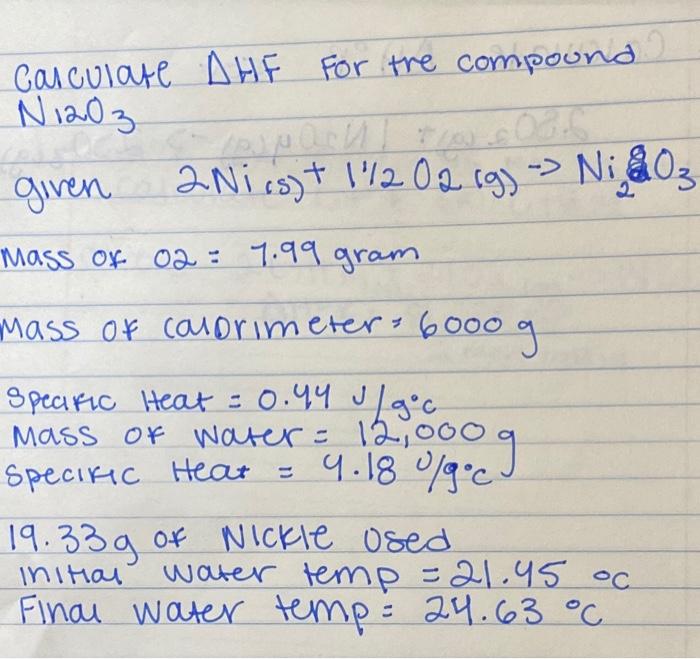 Calculate ΔHF For the compound
Ni2O3
given 2Ni(s) + 1 1/2 O2 (g) -> Ni2O3
Mass of O2 = 7.99 gram
Mass of calorimeter = 6000 g
Specific Heat = 0.44 J/g°C
Mass of water = 12,000 g
Specific Heat = 4.18 J/g°C
19.33g of Nickle Used
initial water temp = 21.45 °C
Final water temp = 24.63 °C